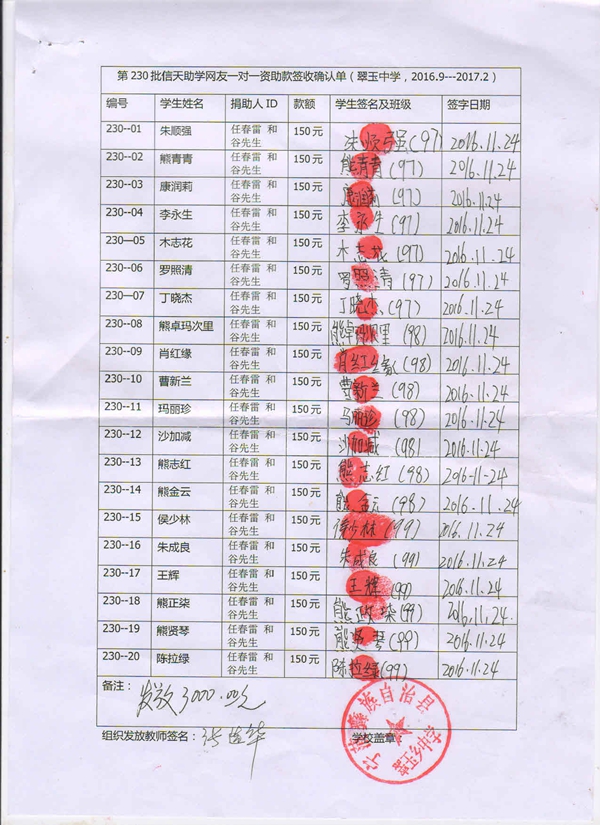 第230批信天助学网友一对一资助款签收确认单（翠玉中学，2016.9---2017.2）
编号 学生姓名 捐助人ID 款额 学生签名及班级 签字日期
230--01 朱顺强 任春雷 和谷先生 150元 朱顺强(97) 2016.11.24
230--02 熊青青 任春雷 和谷先生 150元 熊青青(97) 2016.11.24
230--03 康润莉 任春雷 和谷先生 150元 康润莉(97) 2016.11.24
230--04 李永生 任春雷 和谷先生 150元 李永生(97) 2016.11.24
230—05 木志花 任春雷 和谷先生 150元 木志花(97) 2016.11.24
230--06 罗照清 任春雷 和谷先生 150元 罗照清(97) 2016.11.24
230—07 丁晓杰 任春雷 和谷先生 150元 丁晓杰(97) 2016.11.24
230--08 熊卓玛次里 任春雷 和谷先生 150元 熊卓玛次里(98) 2016.11.24
230--09 肖红缘 任春雷 和谷先生 150元 肖红缘(98) 2016.11.24
230--10 曹新兰 任春雷 和谷先生 150元 曹新兰(98) 2016.11.24
230--11 玛丽珍 任春雷 和谷先生 150元 马丽珍(98) 2016.11.24
230--12 沙加减 任春雷 和谷先生 150元 沙加减(98) 2016.11.24
230--13 熊志红 任春雷 和谷先生 150元 熊志红(98) 2016-11-24
230--14 熊金云 任春雷 和谷先生 150元 熊金云(98) 2016.11.24
230--15 侯少林 任春雷 和谷先生 150元 侯少林(99) 2016.11.24
230--16 朱成良 任春雷 和谷先生 150元 朱成良(99) 2016.11.24
230--17 王辉 任春雷 和谷先生 150元 王辉(99) 2016.11.24
230--18 熊正柒 任春雷 和谷先生 150元 熊正柒(99) 2016.11.24
230--19 熊贤琴 任春雷 和谷先生 150元 熊贤琴(99) 2016.11.24
230--20 陈拉绿 任春雷 和谷先生 150元 陈拉绿(99) 2016.11.24
备注：发放3000.00元
组织发放教师签名： 学校盖章：
宁蒗彝族自治县